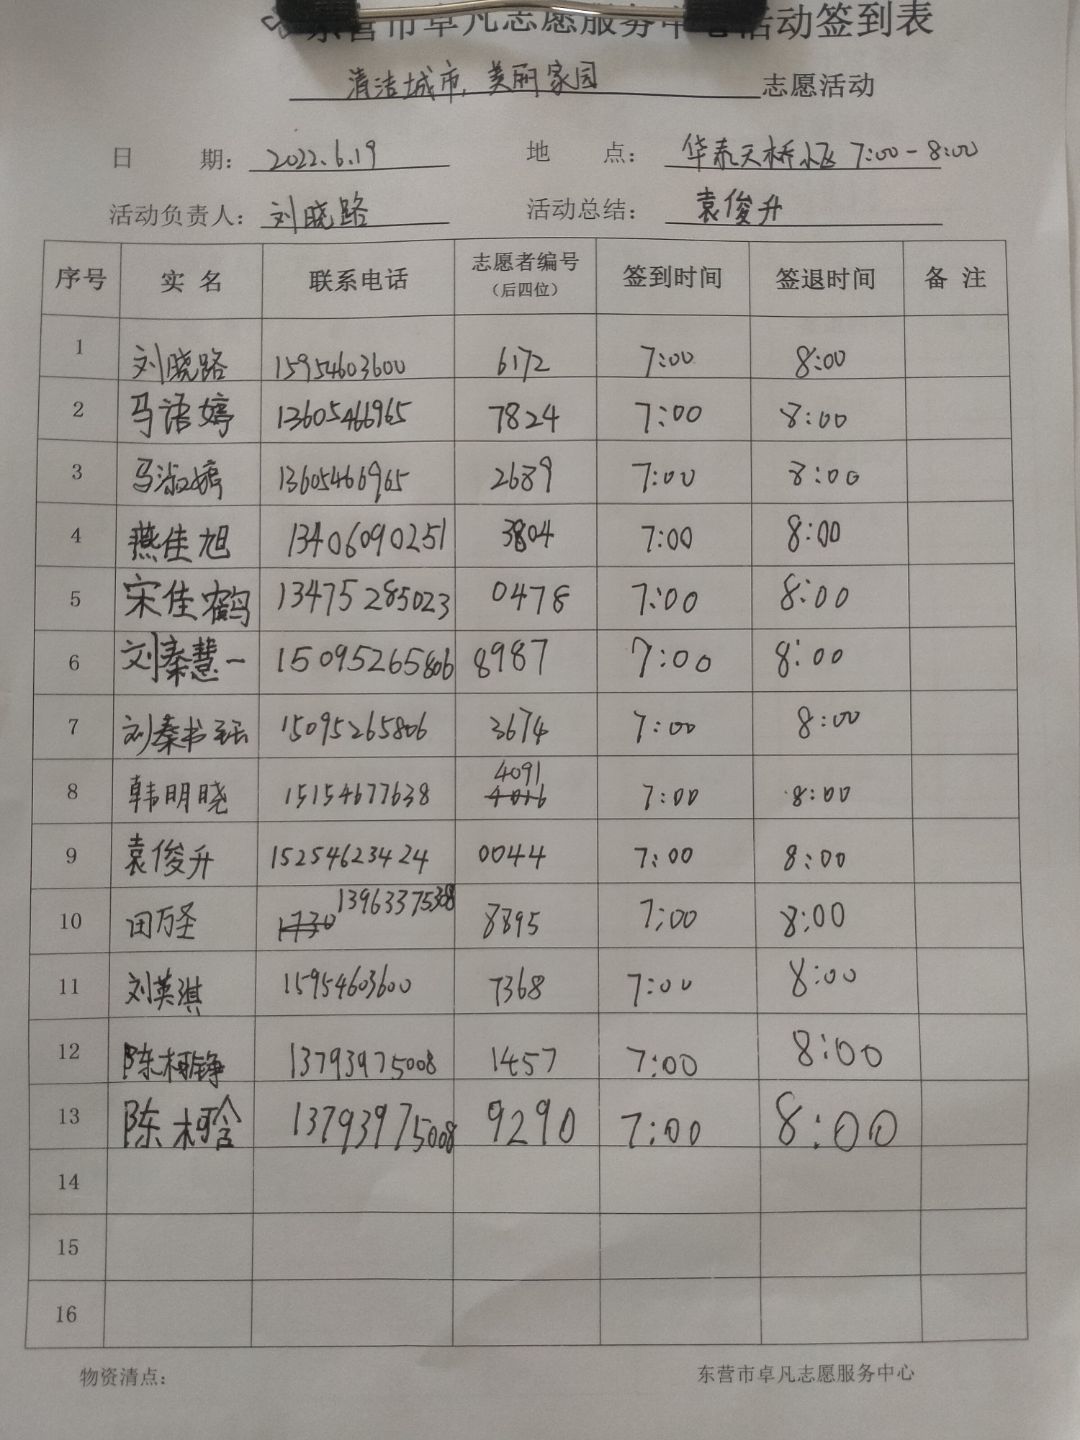 东营市卓凡志愿服务中心活动签到表
清洁城市，美丽家园 志愿活动
日 期：2022.6.19 地 点：华泰天桥小区 7:00-8:00
活动负责人：刘晓路 活动总结：袁俊升
序号 实名 联系电话 志愿者编号（后四位） 签到时间 签退时间 备注
1 刘晓路 15954603600 6172 7:00 8:00
2 马语婷 13605466965 7824 7:00 8:00
3 马淑婷 13605466965 2689 7:00 8:00
4 燕佳旭 13406090251 3804 7:00 8:00
5 宋佳鹤 13475285023 0478 7:00 8:00
6 刘秦慧一 15095265806 8987 7:00 8:00
7 刘秦书 15095265806 3674 7:00 8:00
8 韩明晓 15154677638 4091 7:00 8:00
9 袁俊升 15254623424 0044 7:00 8:00
10 田万圣 1730 13963375308 8895 7:00 8:00
11 刘英淇 15954603600 7368 7:00 8:00
12 陈柯铮 13793975008 1457 7:00 8:00
13 陈柯含 13793975008 9290 7:00 8:00
14
15
16
物资清点： 东营市卓凡志愿服务中心